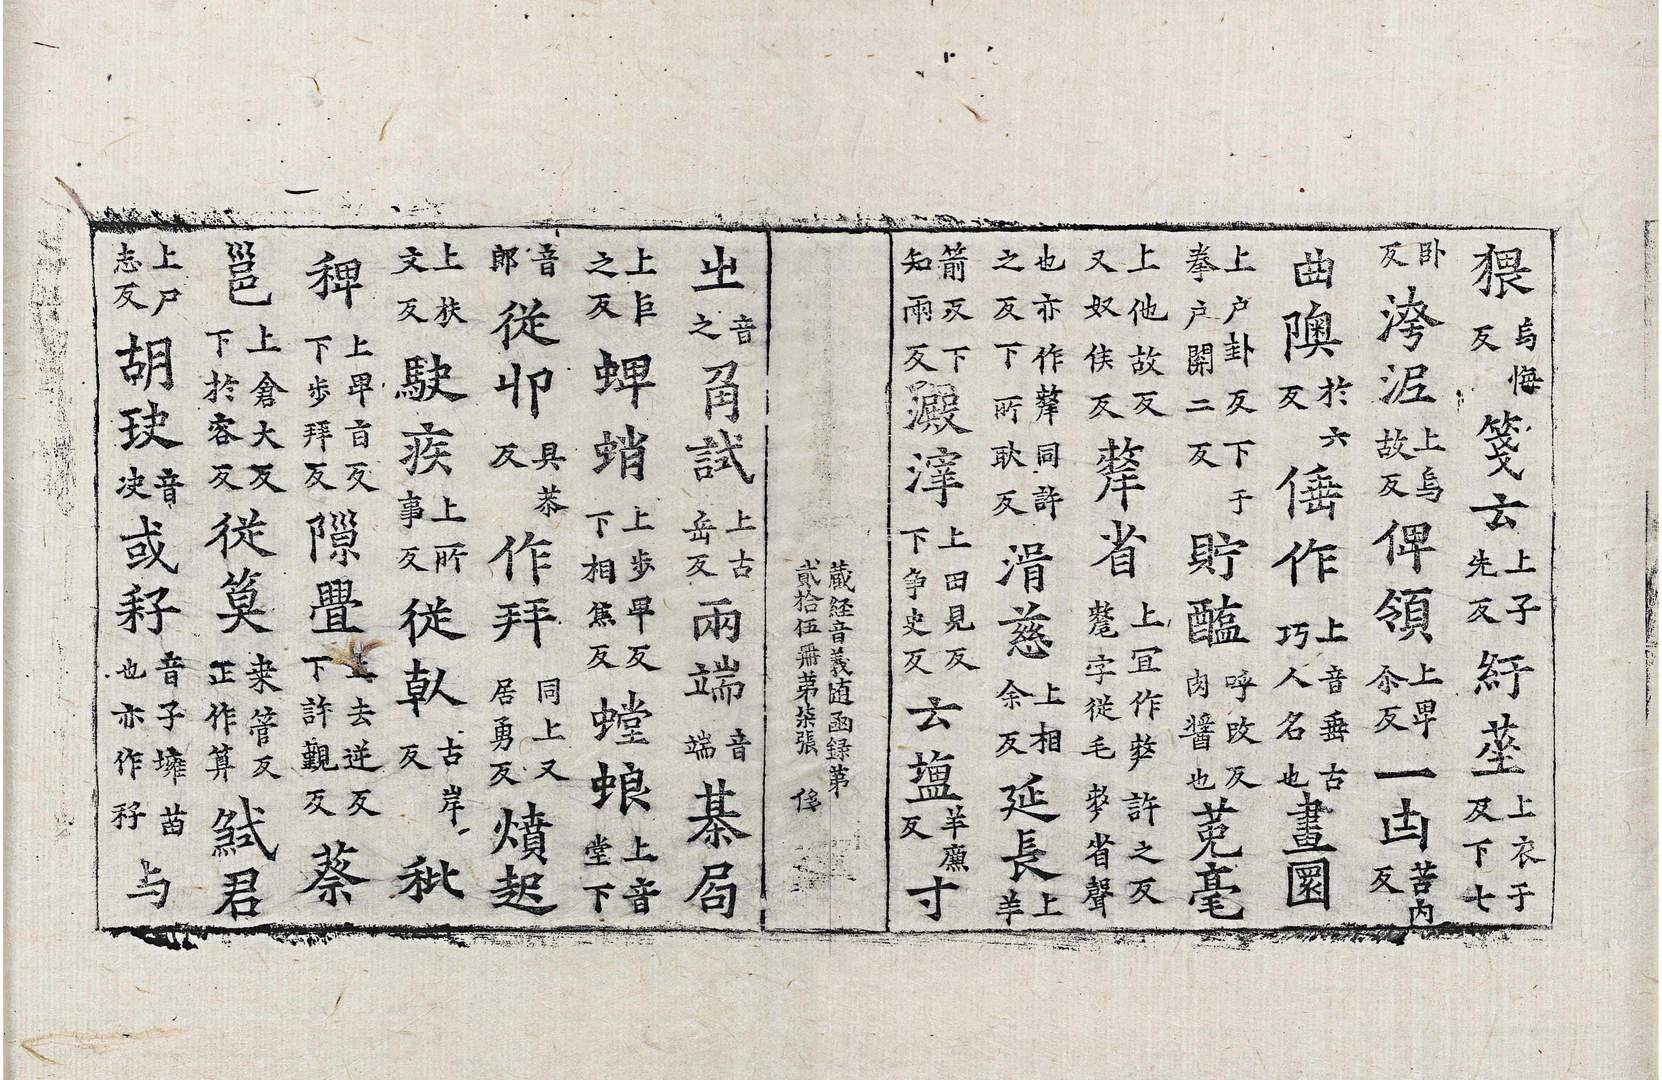 猥烏悔反箋云上子先反紆莝上衣于反下七
卧反洿泥上烏故反俾領上卑尒反一凷苦内反
曲隩於六反倕作上音垂古巧人名也畫圜
上户卦反下于拳户關二反貯醢呼改反肉醬也菟毫
上他故反又奴侯反犛省上冝作𣯛許之反氂字從毛𠩺省聲
也亦作犛同許之反下所耿反涓慈上相余反延長上羊
箭反下知兩反澱滓上田見反下争史反云塩羊廉反寸
藏經音義随函録第貳拾伍册第柒張 侈
㞢音之角試上古岳反兩端音端棊局
上巨之反蜱蛸上步卑反下相焦反螳蜋上音堂下
音郎從卭具恭反作拜同上又居勇反燌起
上扶文反駛疾上所事反從倝古岸反秕
稗上卑盲反下步拜反隙釁上去逆反下許覲反蔡
邕上倉大反下於容反從筭桒管反正作算弑君
上尸志反胡玦音决或秄音子壅苗也亦作秄与